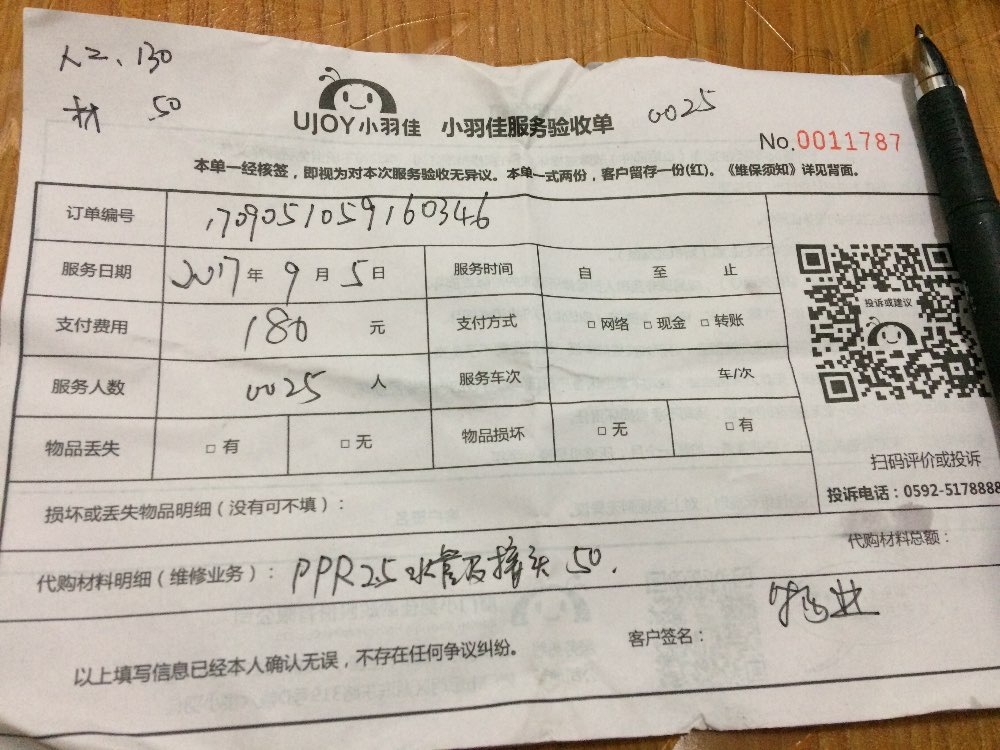 人工、130
材 50
UJOY小羽佳 小羽佳服务验收单 0025
No.0011787
本单一经核签，即视为对本次服务验收无异议。本单一式两份，客户留存一份(红)。《维保须知》详见背面。
订单编号 1709051059160346
服务日期 2017年9月5日 服务时间 自 至 止
支付费用 180 元 支付方式 □ 网络 □ 现金 □ 转账
服务人数 0025 人 服务车次 车/次
物品丢失 □ 有 □ 无 物品损坏 □ 无 □ 有
投诉或建议
扫码评价或投诉
投诉电话：0592-5178888
损坏或丢失物品明细（没有可不填）：
代购材料明细（维修业务）： PPR25水管及接头50.
代购材料总额：
以上填写信息已经本人确认无误，不存在任何争议纠纷。
客户签名： 物业